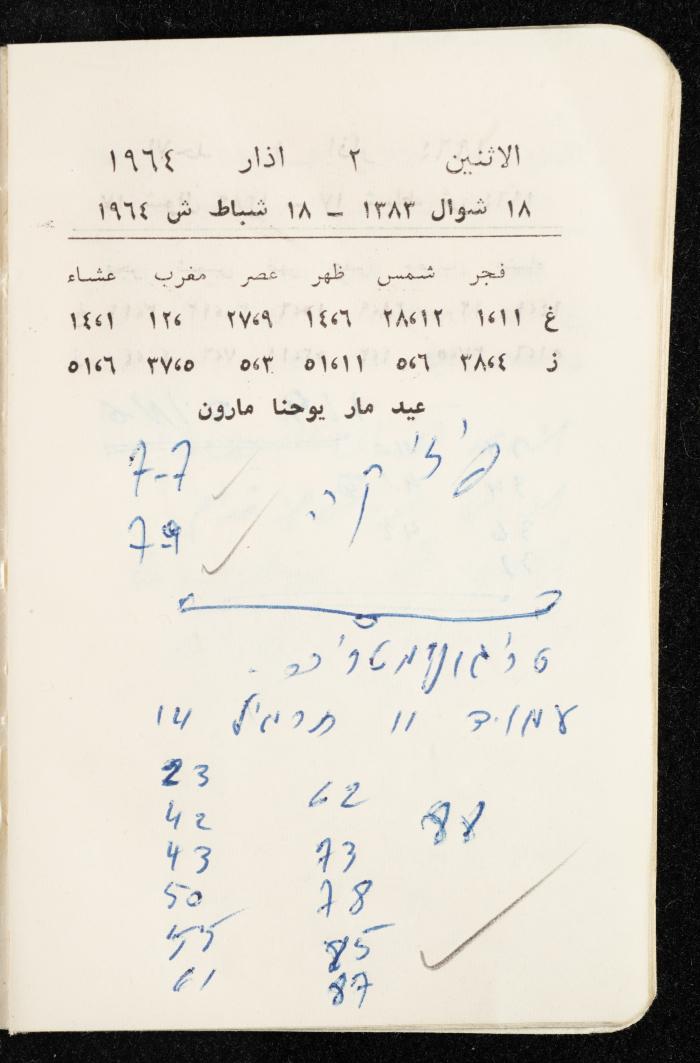 الاثنين ٢ اذار ١٩٦٤
١٨ شوال ١٣٨٣ – ١٨ شباط ش ١٩٦٤
فجر شمس ظهر عصر مغرب عشاء
غ ١،١١ ٢٨،١٢ ١٤،٦ ٢٧،٩ ١٢،٠ ١٤،١
ز ٣٨،٤ ٥،٦ ٥١،١١ ٥،٣ ٣٧،٥ ٥١،٦
عيد مار يوحنا مارون
פיזיקה
7-7
7-9
טריגונומטריה
עמוד 11 תרגיל 14
23 62 88
42 73
43 78
50 85
55 87
61